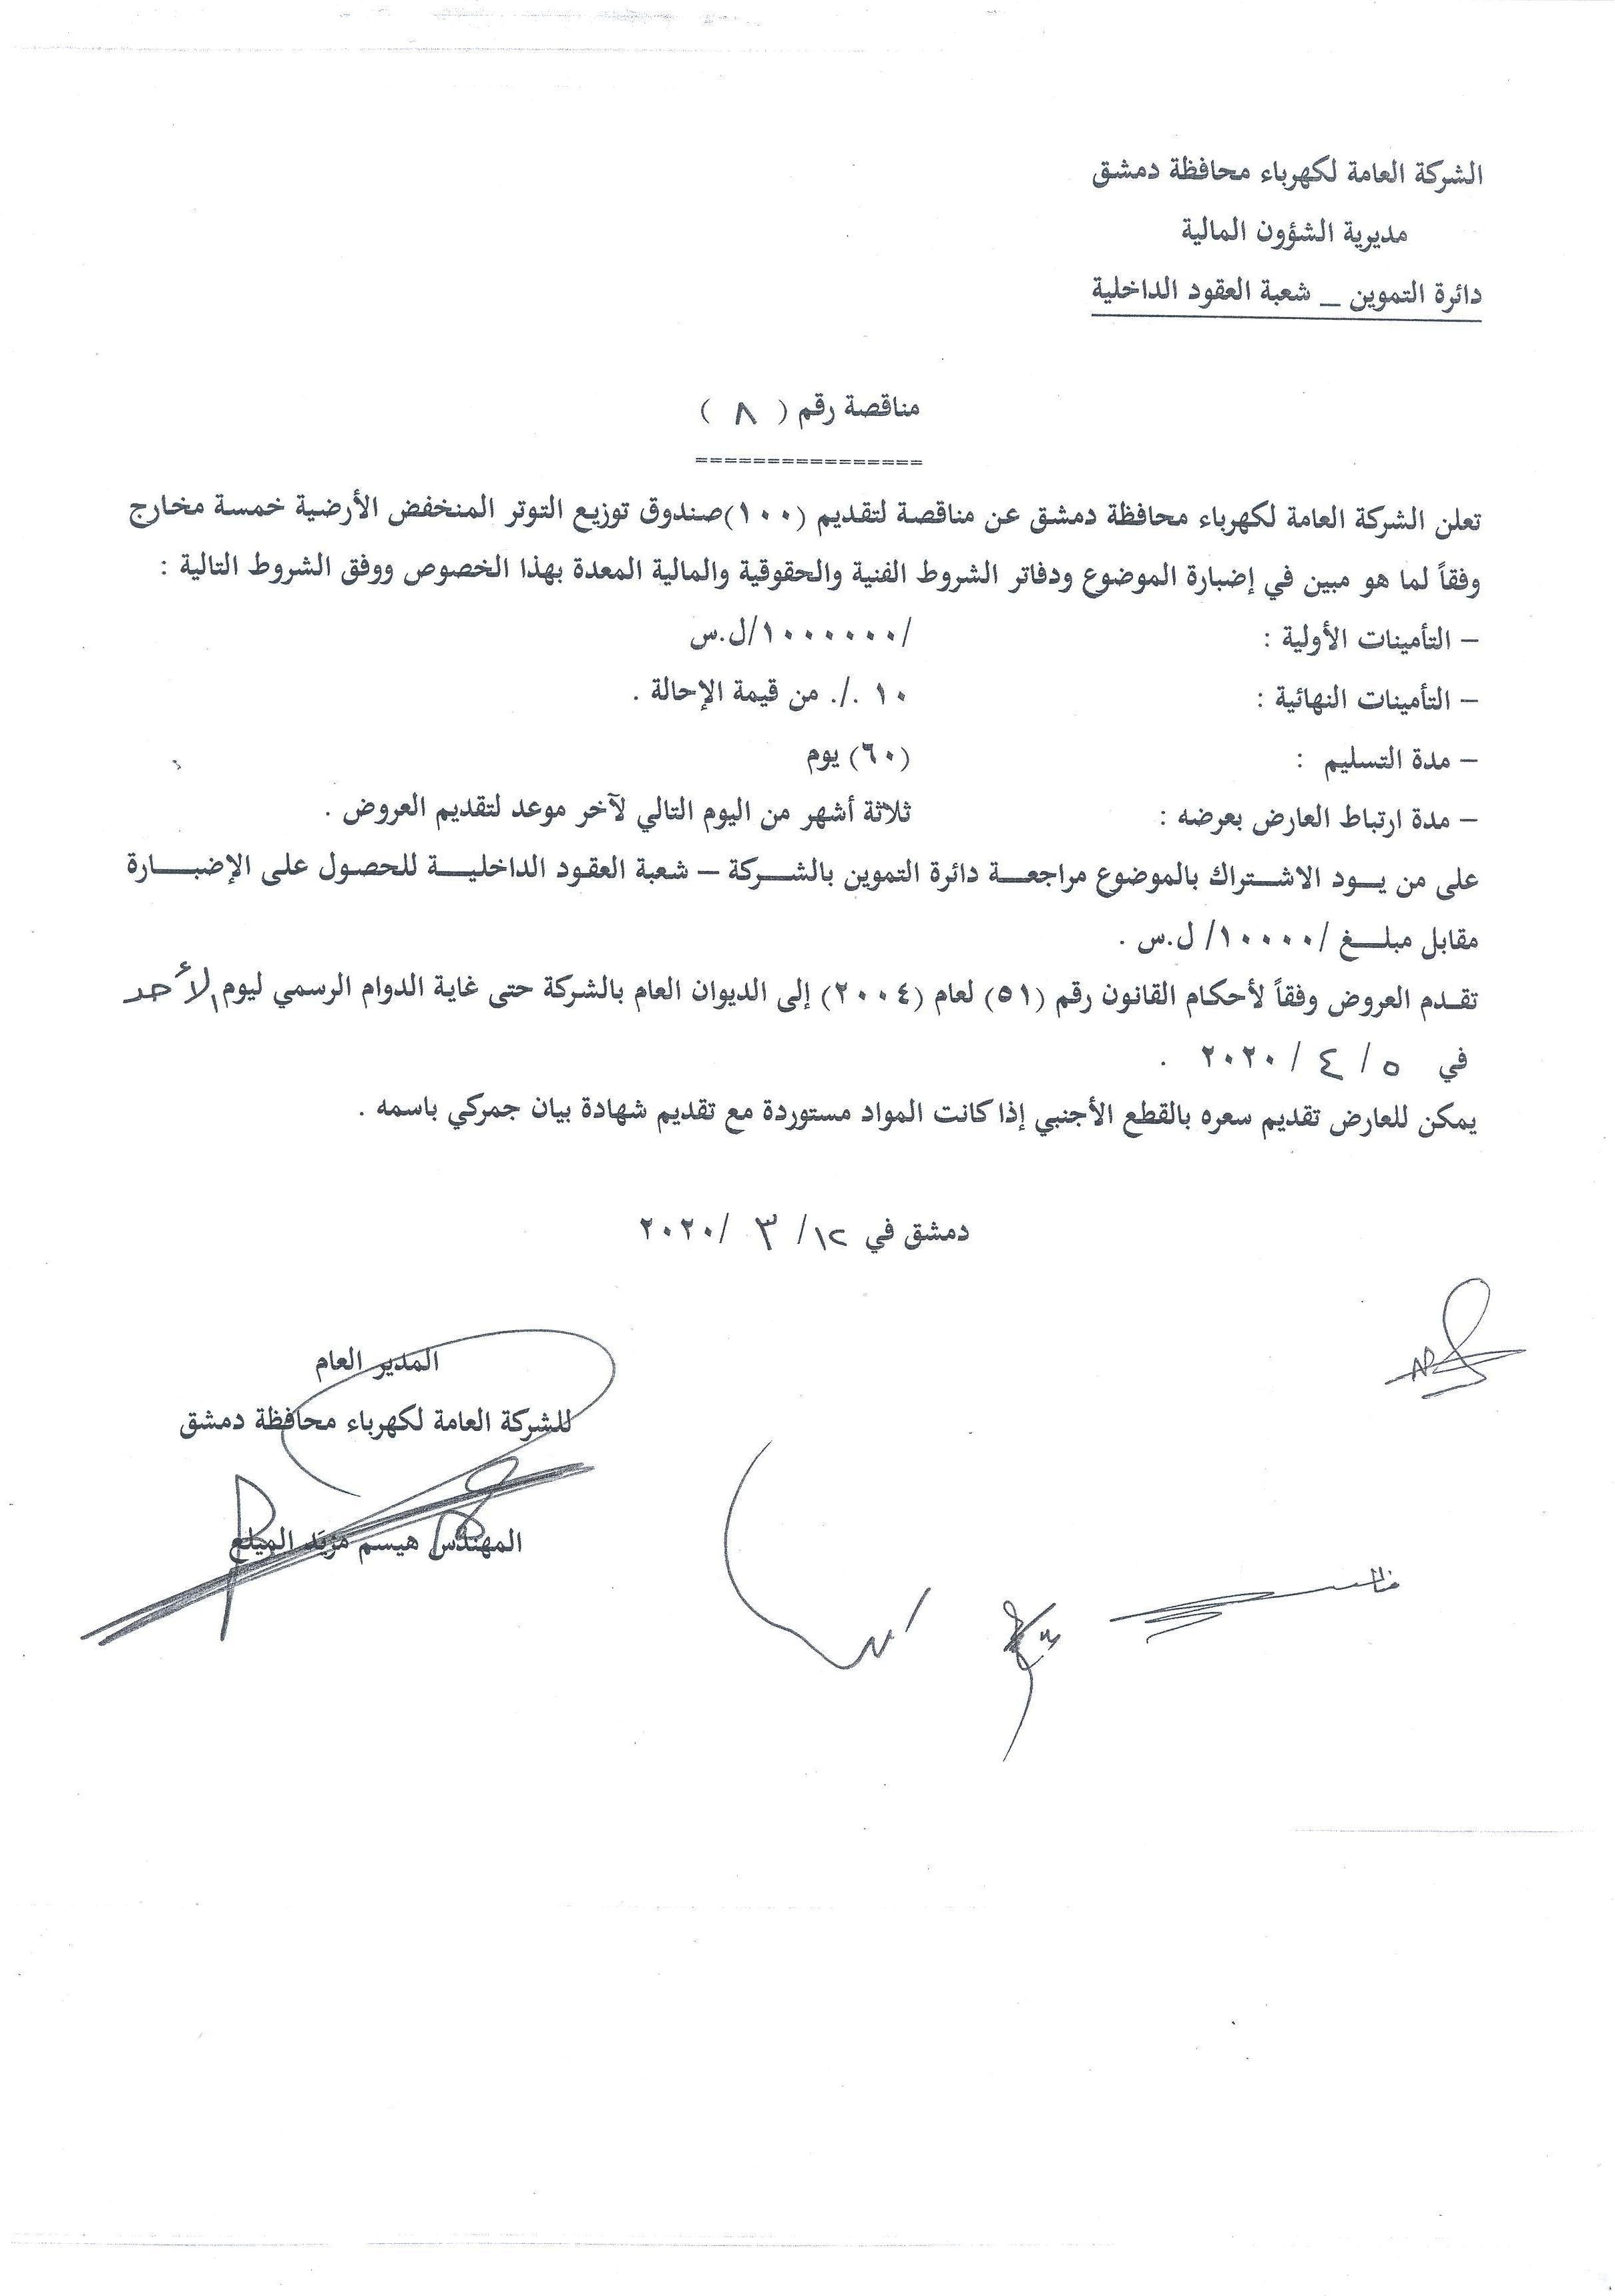 الشركة العامة لكهرباء محافظة دمشق
مديرية الشؤون المالية
دائرة التموين _ شعبة العقود الداخلية
مناقصة رقم ( ٨ )
================
تعلن الشركة العامة لكهرباء محافظة دمشق عن مناقصة لتقديم (١٠٠)صندوق توزيع التوتر المنخفض الأرضية خمسة مخارج
وفقاً لما هو مبين في إضبارة الموضوع ودفاتر الشروط الفنية والحقوقية والمالية المعدة بهذا الخصوص ووفق الشروط التالية :
– التأمينات الأولية : /١٠٠٠٠٠٠/ل.س
– التأمينات النهائية : ١٠ ./. من قيمة الإحالة .
– مدة التسليم : (٦٠) يوم
– مدة ارتباط العارض بعرضه : ثلاثة أشهر من اليوم التالي لآخر موعد لتقديم العروض .
على من يـــود الاشـــتراك بالموضوع مراجعـــة دائرة التموين بالشـــركة – شعبة العقود الداخليـــة للحصول على الإضبـــارة
مقابل مبلـــغ /١٠٠٠٠/ ل.س .
تقـدم العروض وفقاً لأحكام القانون رقم (٥١) لعام (٢٠٠٤) إلى الديوان العام بالشركة حتى غاية الدوام الرسمي ليوم الأحد
في ٥ / ٤ / ٢٠٢٠ .
يمكن للعارض تقديم سعره بالقطع الأجنبي إذا كانت المواد مستوردة مع تقديم شهادة بيان جمركي باسمه .
دمشق في ١٢/ ٣ /٢٠٢٠
المدير العام
للشركة العامة لكهرباء محافظة دمشق
المهندس هيسم مزيد الميلع